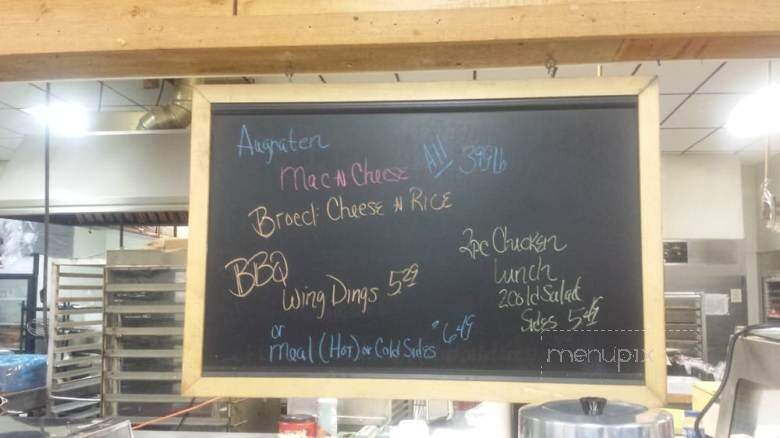 Augraten
Mac N Cheese All 399lb
Brocci: Cheese N Rice
BBQ
Wing Dings 5.29
or
Meal (Hot) or Cold Sides $6.49
2pc Chicken
Lunch
2 Cold Salad
Sides 5.49
menupix